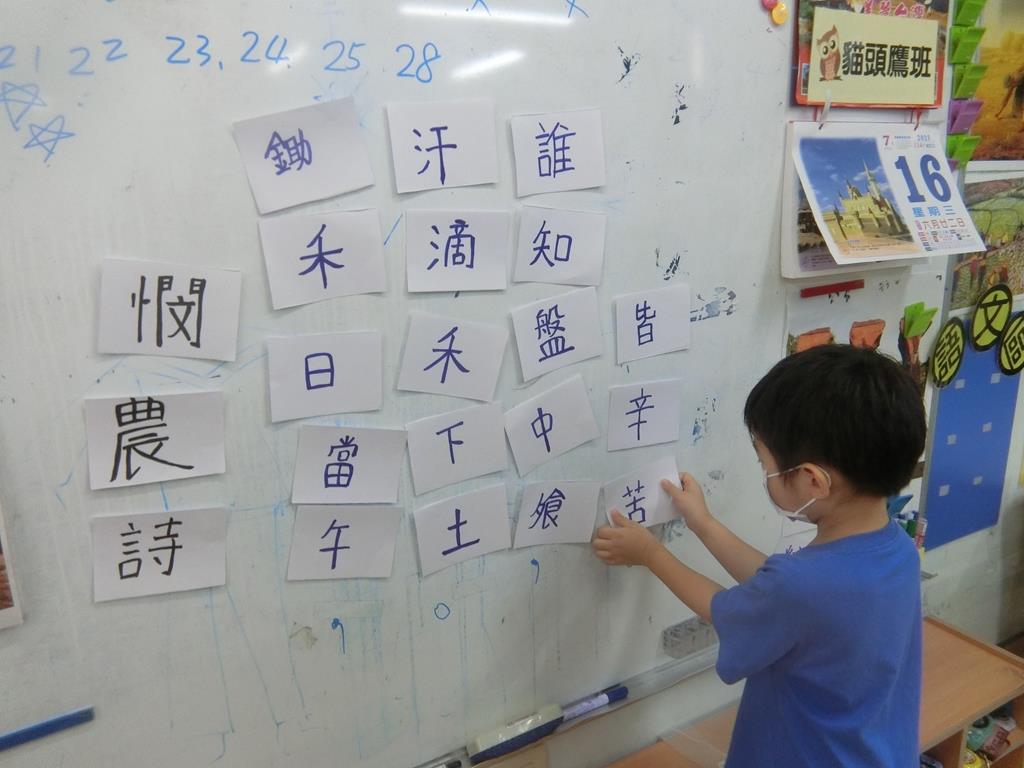 21 22 23. 24 25 28
憫農詩
鋤禾日當午
汗滴禾下土
誰知盤中飱
皆辛苦
貓頭鷹班
7
2025
16
星期三
六月廿二日
語文